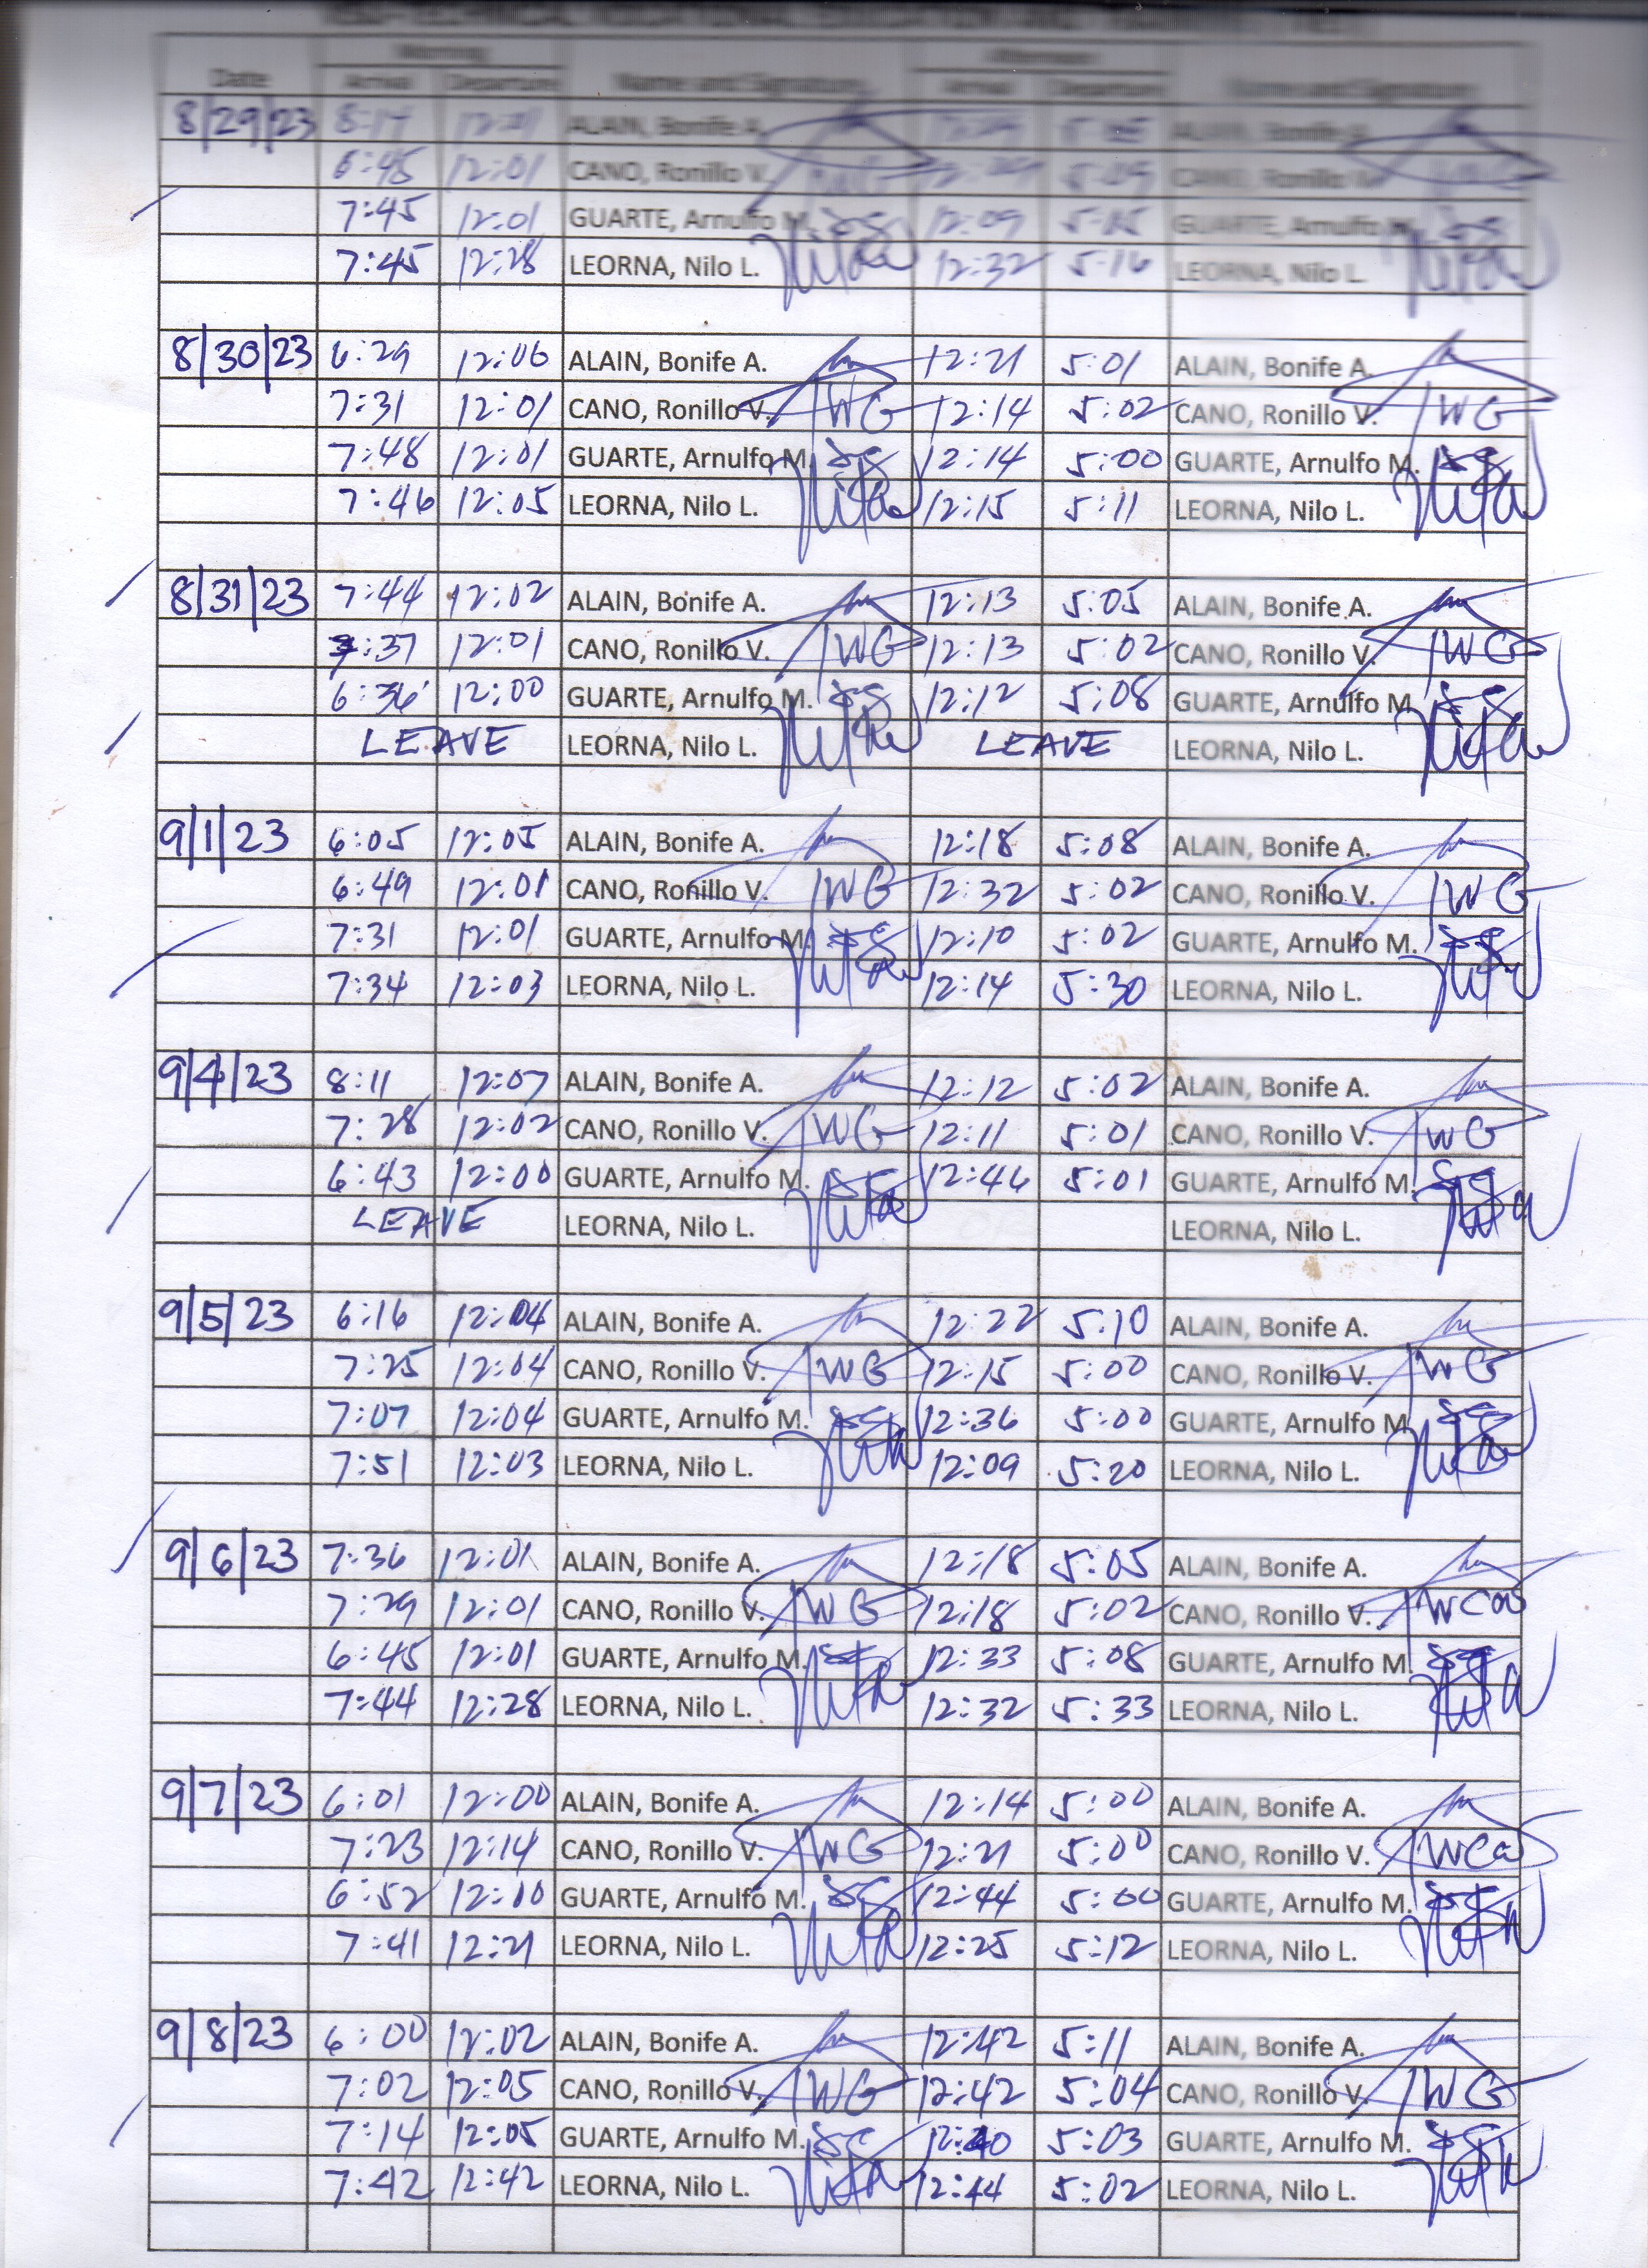 Morning Afternoon
Date Arrival Departure Name and Signature Arrival Departure Name and Signature
8/29/23 ALAIN, Bonife A. ALAIN, Bonife A.
6:45 12:01 CANO, Ronillo V. 12:09 5:09 CANO, Ronillo V.
7:45 12:01 GUARTE, Arnulfo M. 12:09 5:05 GUARTE, Arnulfo M.
7:45 12:28 LEORNA, Nilo L. 12:32 5:16 LEORNA, Nilo L.
8/30/23 6:29 12:06 ALAIN, Bonife A. 12:21 5:01 ALAIN, Bonife A.
7:31 12:01 CANO, Ronillo V. 12:14 5:02 CANO, Ronillo V.
7:48 12:01 GUARTE, Arnulfo M. 12:14 5:00 GUARTE, Arnulfo M.
7:46 12:05 LEORNA, Nilo L. 12:15 5:11 LEORNA, Nilo L.
8/31/23 7:44 12:02 ALAIN, Bonife A. 12:13 5:05 ALAIN, Bonife A.
7:37 12:01 CANO, Ronillo V. 12:13 5:02 CANO, Ronillo V.
6:36 12:00 GUARTE, Arnulfo M. 12:12 5:08 GUARTE, Arnulfo M.
LEAVE LEORNA, Nilo L. LEAVE LEORNA, Nilo L.
9/1/23 6:05 12:05 ALAIN, Bonife A. 12:18 5:08 ALAIN, Bonife A.
6:49 12:01 CANO, Ronillo V. 12:32 5:02 CANO, Ronillo V.
7:31 12:01 GUARTE, Arnulfo M. 12:10 5:02 GUARTE, Arnulfo M.
7:34 12:03 LEORNA, Nilo L. 12:14 5:30 LEORNA, Nilo L.
9/4/23 8:11 12:07 ALAIN, Bonife A. 12:12 5:02 ALAIN, Bonife A.
7:28 12:02 CANO, Ronillo V. 12:11 5:01 CANO, Ronillo V.
6:43 12:00 GUARTE, Arnulfo M. 12:46 5:01 GUARTE, Arnulfo M.
LEAVE LEORNA, Nilo L. LEORNA, Nilo L.
9/5/23 6:16 12:04 ALAIN, Bonife A. 12:22 5:10 ALAIN, Bonife A.
7:25 12:04 CANO, Ronillo V. 12:15 5:00 CANO, Ronillo V.
7:07 12:04 GUARTE, Arnulfo M. 12:36 5:00 GUARTE, Arnulfo M.
7:51 12:03 LEORNA, Nilo L. 12:09 5:20 LEORNA, Nilo L.
9/6/23 7:36 12:01 ALAIN, Bonife A. 12:18 5:05 ALAIN, Bonife A.
7:29 12:01 CANO, Ronillo V. 12:18 5:02 CANO, Ronillo V.
6:45 12:01 GUARTE, Arnulfo M. 12:33 5:08 GUARTE, Arnulfo M.
7:44 12:28 LEORNA, Nilo L. 12:32 5:33 LEORNA, Nilo L.
9/7/23 6:01 12:00 ALAIN, Bonife A. 12:14 5:00 ALAIN, Bonife A.
7:23 12:14 CANO, Ronillo V. 12:21 5:00 CANO, Ronillo V.
6:52 12:10 GUARTE, Arnulfo M. 12:44 5:00 GUARTE, Arnulfo M.
7:41 12:21 LEORNA, Nilo L. 12:25 5:12 LEORNA, Nilo L.
9/8/23 6:00 12:02 ALAIN, Bonife A. 12:42 5:11 ALAIN, Bonife A.
7:02 12:05 CANO, Ronillo V. 12:42 5:04 CANO, Ronillo V.
7:14 12:05 GUARTE, Arnulfo M. 12:40 5:03 GUARTE, Arnulfo M.
7:42 12:42 LEORNA, Nilo L. 12:44 5:02 LEORNA, Nilo L.